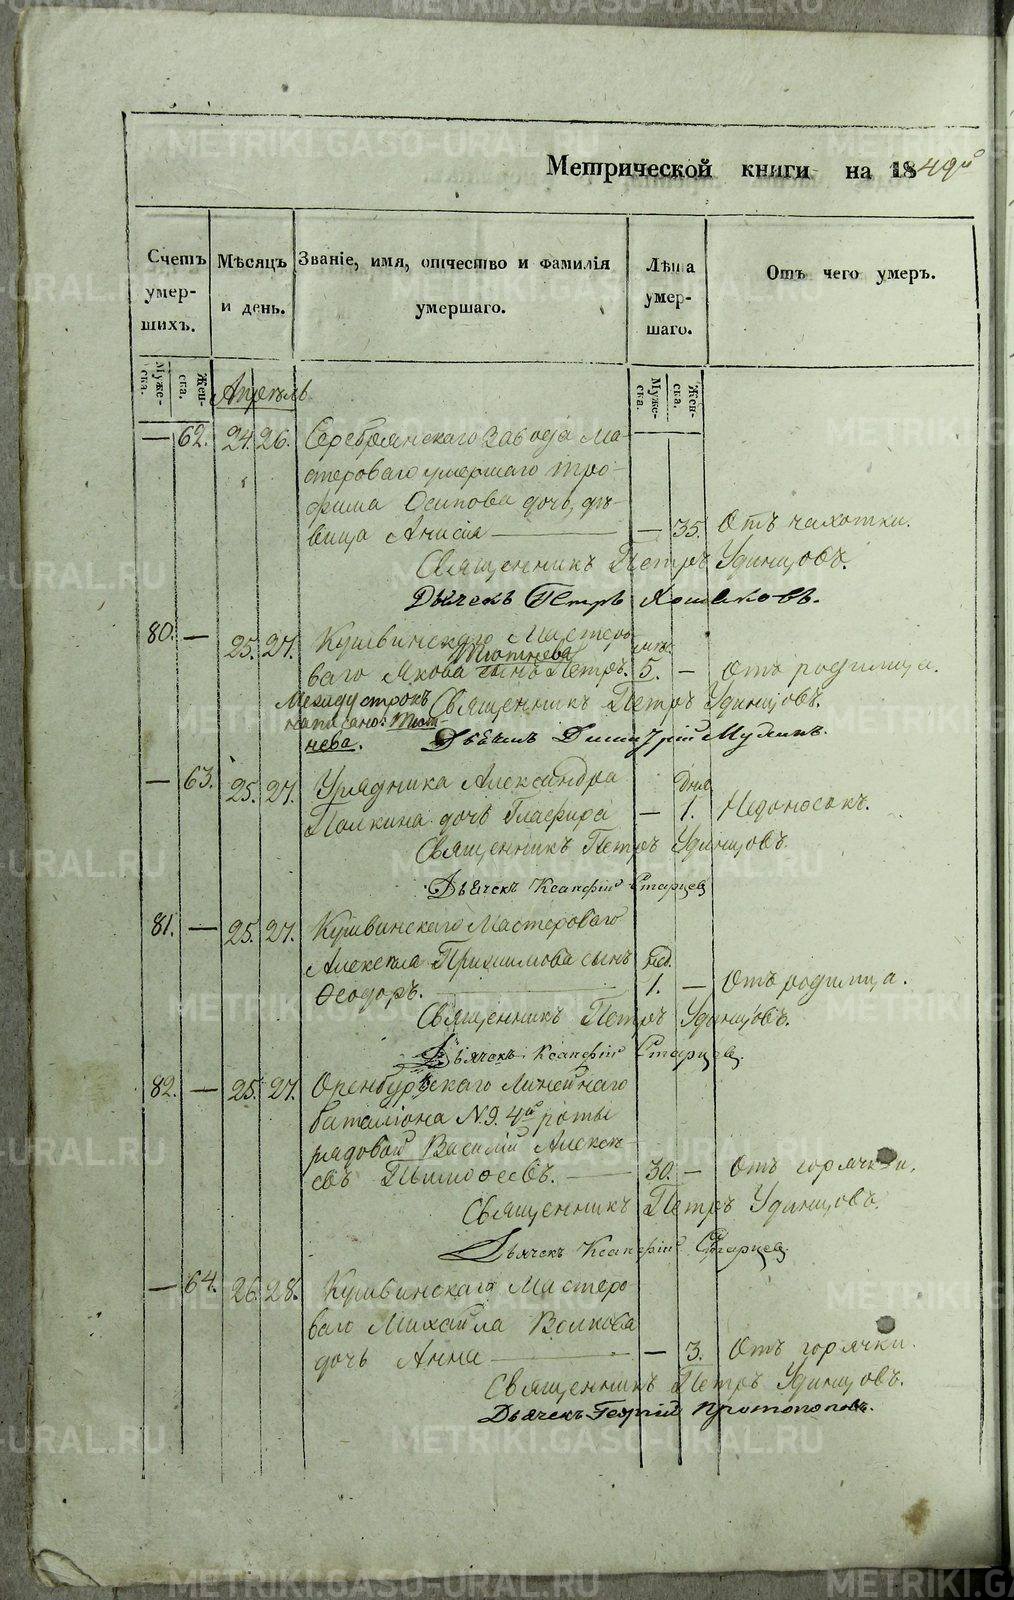 Метрической книги на 1849й
Счетъ умершихъ.
Мѣсяцъ и день.
Званіе, имя, отчество и фамилія умершаго.
Лѣта умершаго.
Отъ чего умеръ.
Мужеска.
Женска.
Апрѣль
Мужеска.
Женска.
— 62. 24. 26. Серебрянскаго завода Ма-
стероваго умершаго Тро-
фима Осипова дочь, дѣ-
вица Анисія — — 35. Отъ чахотки.
Священникъ Петръ Удинцовъ.
Дьячекъ Петръ Хомяковъ.
80. — 25. 27. Кушвинскаго Мастеро-
Тютнева
ваго Якова сынъ Петръ. 5. — Отъ родимца.
Между строкъ Священникъ Петръ Удинцовъ.
написано: Тют-
нева. Дьячекъ Димитрій
— 63. 25. 27. Урядника Александра Дня
Палкина дочь Глафира — 1. Недоносокъ.
Священникъ Петръ Удинцовъ.
Дьячекъ Ксенофій Старцев
81. — 25. 27. Кушвинскаго Мастероваго
Алексѣя сынъ
Ѳеодоръ. 1. — Отъ родимца.
Священникъ Петръ Удинцовъ.
Дьячекъ Ксенофій Старцев.
82. — 25. 27. Оренбургскаго Линейнаго
баталіона №9. 4й роты
рядовой Василій Алексѣ-
евъ Тимоѳеевъ. — 30. — Отъ горячки.
Священникъ Петръ Удинцовъ.
Дьячекъ Ксенофій Старцев.
— 64. 26. 28. Кушвинскаго Мастеро-
ваго Михайла Волкова
дочь Анна — — 3. Отъ горячки.
Священникъ Петръ Удинцовъ.
Дьячекъ Георгій Протопоповъ.
METRIKI.GASO-URAL.RU